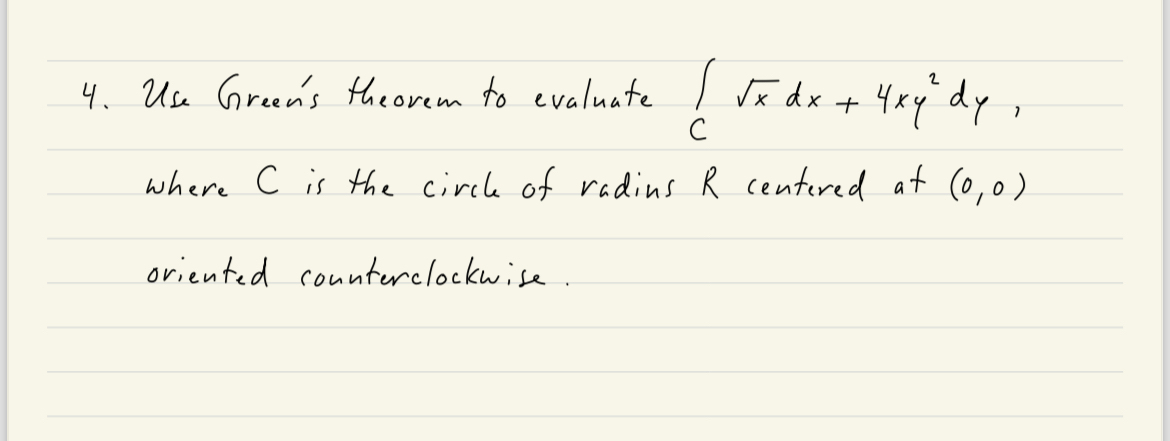 4. Use Green's theorem to evaluate ∫_C √x dx + 4xy² dy ,
where C is the circle of radius R centered at (0,0)
oriented counterclockwise.